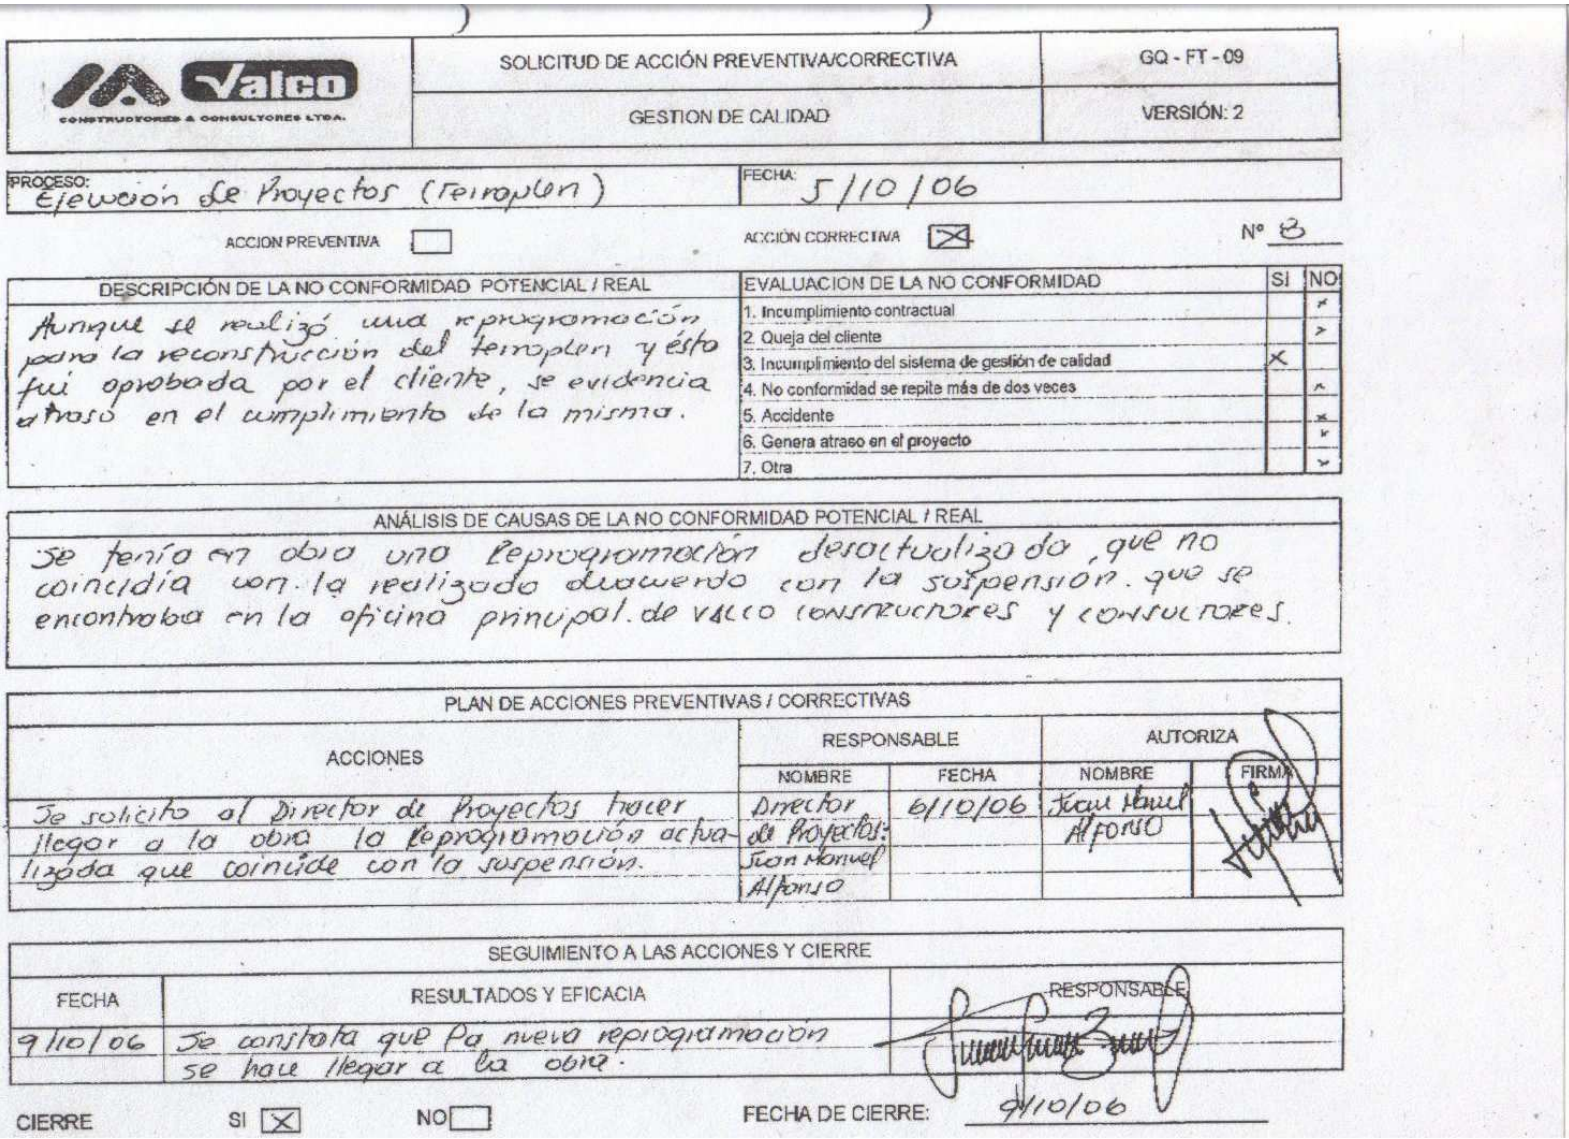 Valco
CONSTRUCTORES & CONSULTORES LTDA.
SOLICITUD DE ACCIÓN PREVENTIVA/CORRECTIVA
GQ - FT - 09
GESTION DE CALIDAD
VERSIÓN: 2
PROCESO: Ejecución de Proyectos (Terraplen)
FECHA: 5/10/06
ACCION PREVENTIVA
ACCIÓN CORRECTIVA X
Nº 8
DESCRIPCIÓN DE LA NO CONFORMIDAD POTENCIAL / REAL
Aunque se realizó una reprogramación
para la reconstrucción del terraplen y ésta
fui aprobada por el cliente, se evidencia
atraso en el cumplimiento de la misma.
EVALUACION DE LA NO CONFORMIDAD SI NO
1. Incumplimiento contractual x
2. Queja del cliente x
3. Incumplimiento del sistema de gestión de calidad X
4. No conformidad se repite más de dos veces x
5. Accidente x
6. Genera atraso en el proyecto x
7. Otra x
ANÁLISIS DE CAUSAS DE LA NO CONFORMIDAD POTENCIAL / REAL
Se tenía en obra una Reprogramación desactualizada, que no
coincidia con la realizada deacuerdo con la suspensión. que se
encontraba en la oficina principal. de VALCO CONSTRUCTORES y CONSULTORES.
PLAN DE ACCIONES PREVENTIVAS / CORRECTIVAS
ACCIONES
RESPONSABLE
AUTORIZA
NOMBRE FECHA NOMBRE FIRMA
Se solicito al Director de Proyectos hacer Director 6/10/06 Juan Manuel
llegar a la obra la Reprogramación actua- de Proyectos: Alfonso
lizada que coincide con la suspensión. Juan Manuel
Alfonso
SEGUIMIENTO A LAS ACCIONES Y CIERRE
FECHA RESULTADOS Y EFICACIA RESPONSABLE
9/10/06 Se constata que la nueva reprogramación
se hace llegar a la obra.
CIERRE SI X NO FECHA DE CIERRE: 9/10/06